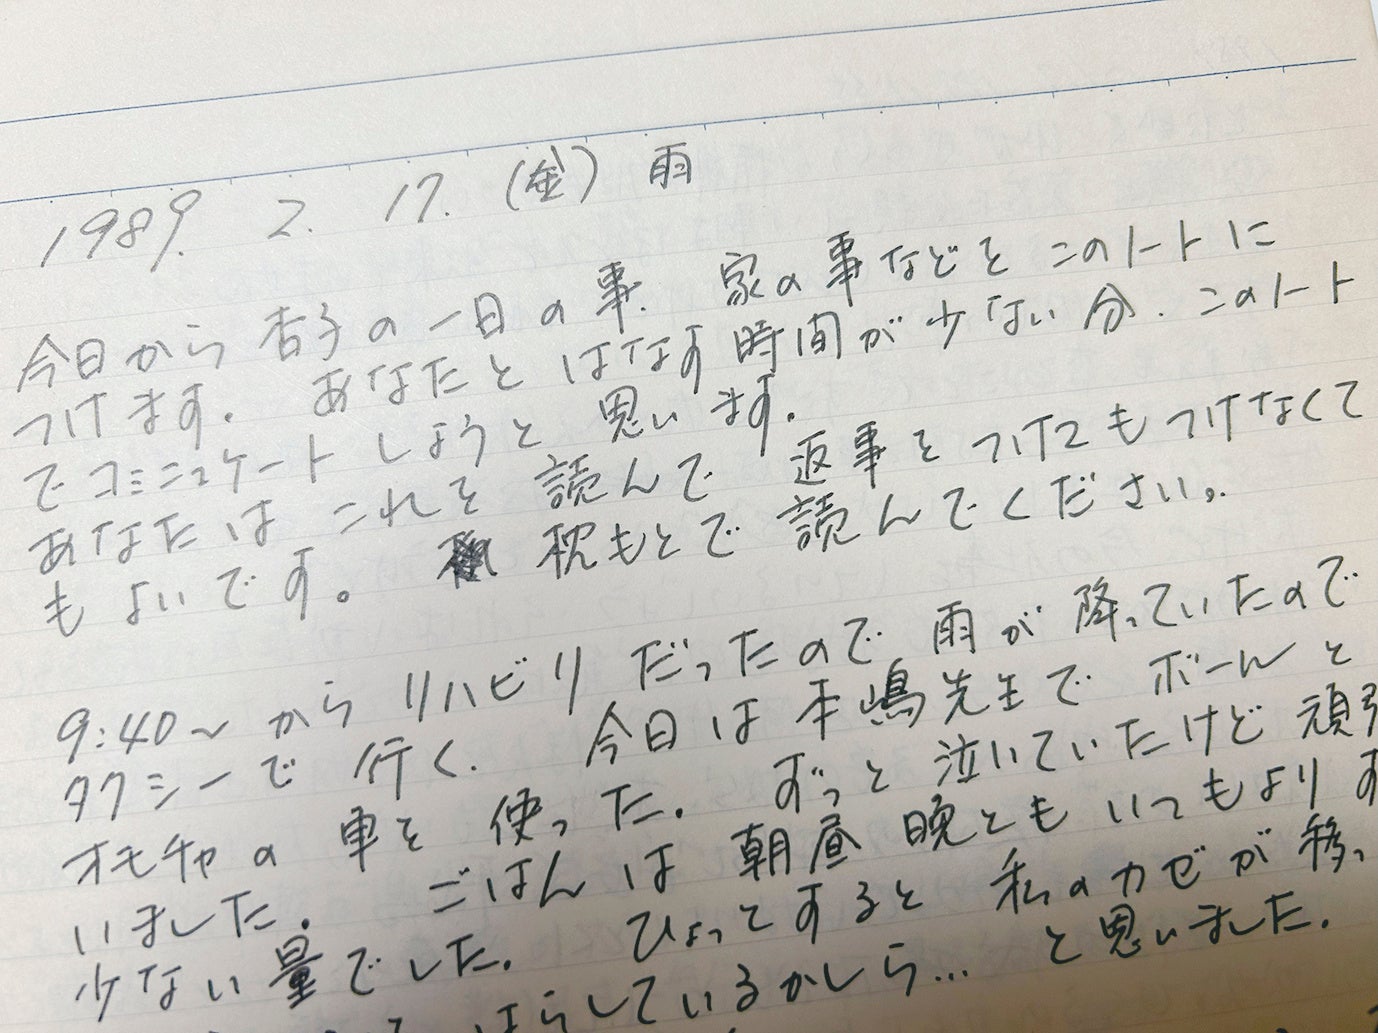 1989. 2. 17. (金) 雨
今日から杏子の一日の事. 家の事などをこのノートに
つけます. あなたとはなす時間が少ない分. このノート
でコミニュケートしようと思います.
あなたはこれを読んで返事をつけてもつけなくて
もよいです。 枕もとで読んでください.
9:40~からリハビリだったので雨が降っていたので
タクシーで行く. 今日は本嶋先生でボールと
オモチャの車を使った. ずっと泣いていたけど頑張
いました. ごはんは朝昼晩ともいつもよりす
少ない量でした. ひょっとすると私のカゼが移っ
はらしているかしら… と思いました.